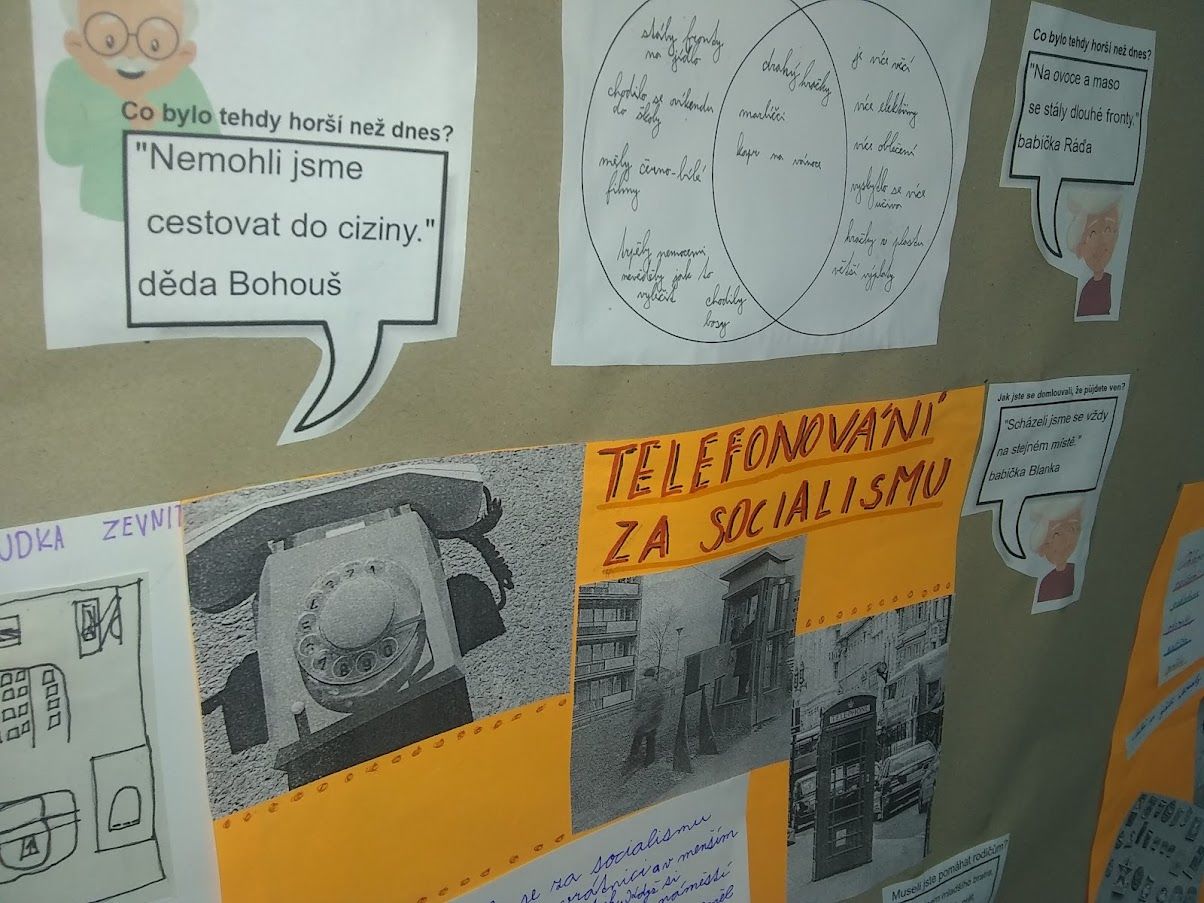 Co bylo tehdy horší než dnes?
"Nemohli jsme
cestovat do ciziny."
děda Bohouš
stály fronty
na jídlo
chodilo se o víkendu
do školy
měly černo-bílé
filmy
trpěly nemocemi
nevěděly jak to
vyléčit
chodily
bosy
drahý hračky
mazlíčci
kapr na vánoce
je více věcí
více elektřiny
více oblečení
vyskytlo se více
učiva
hračky z plastu
větší výplaty
Co bylo tehdy horší než dnes?
"Na ovoce a maso
se stály dlouhé fronty."
babička Ráďa
Jak jste se domlouvali, že půjdete ven?
"Scházeli jsme se vždy
na stejném místě."
babička Blanka
TELEFONOVÁNÍ
ZA SOCIALISMU
UDKA ZEVNIT
TELEPHONE
se za socialismu
v menším
náměstí
Museli jste pomáhat rodičům?
mladšího bratra,